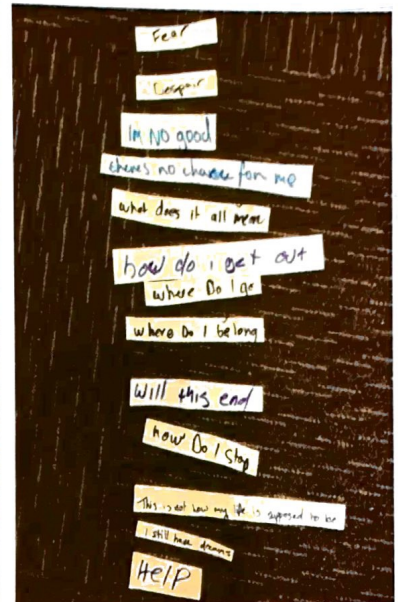 Fear
Despair
Im NO good
theres no chance for me
what does it all mean
how do i get out
where Do I go
where Do I belong
Will this end
how Do I stop
This is not how my life is supposed to be
I still have dreams
HElP